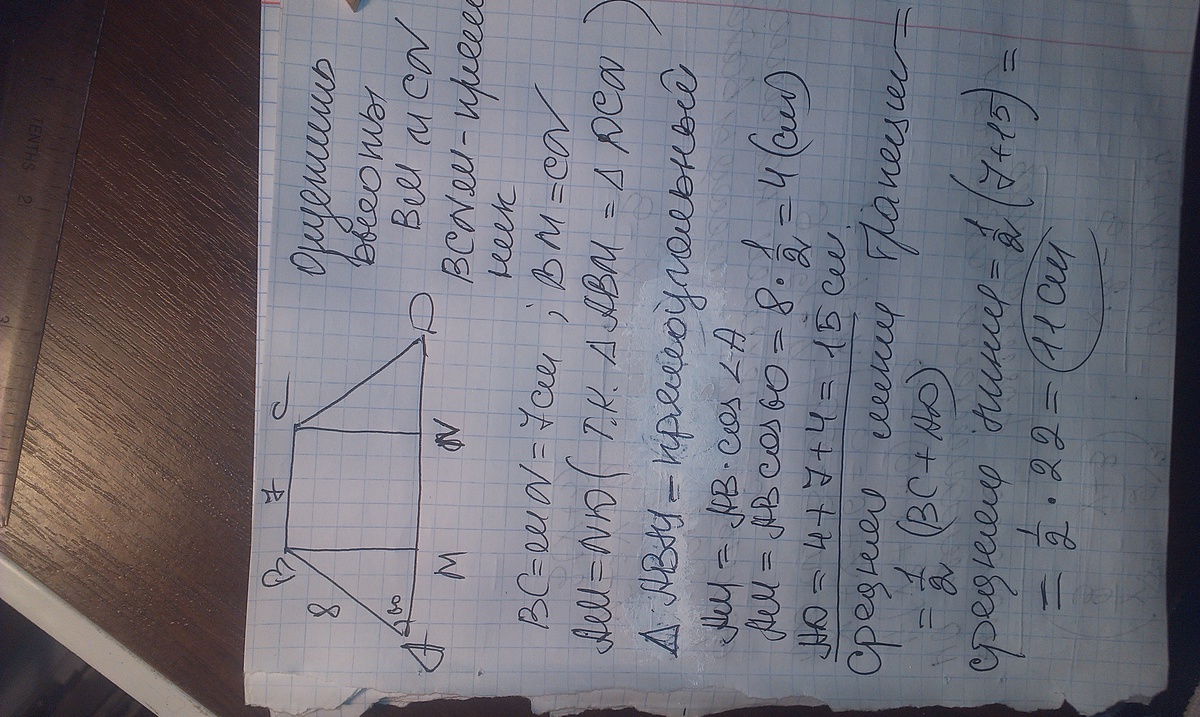 B 7 C
8
A 60 M N D
Опустить
высоты
BM и CN
BCNM - прям
ник
BC = MN = 7 см ; BM = CN
AM = ND ( т.к. Δ ABM = Δ DCN )
Δ ABM = прямоугольный
AM = AB · cos ∠A
AM = AB cos 60 = 8 · 1/2 = 4 (см)
AD = 4 + 7 + 4 = 15 см
Средняя линия Трапеции =
= 1/2 (BC + AD)
средняя линия = 1/2 (7 + 15) =
= 1/2 · 22 = 11 см
TENTHS 2
3